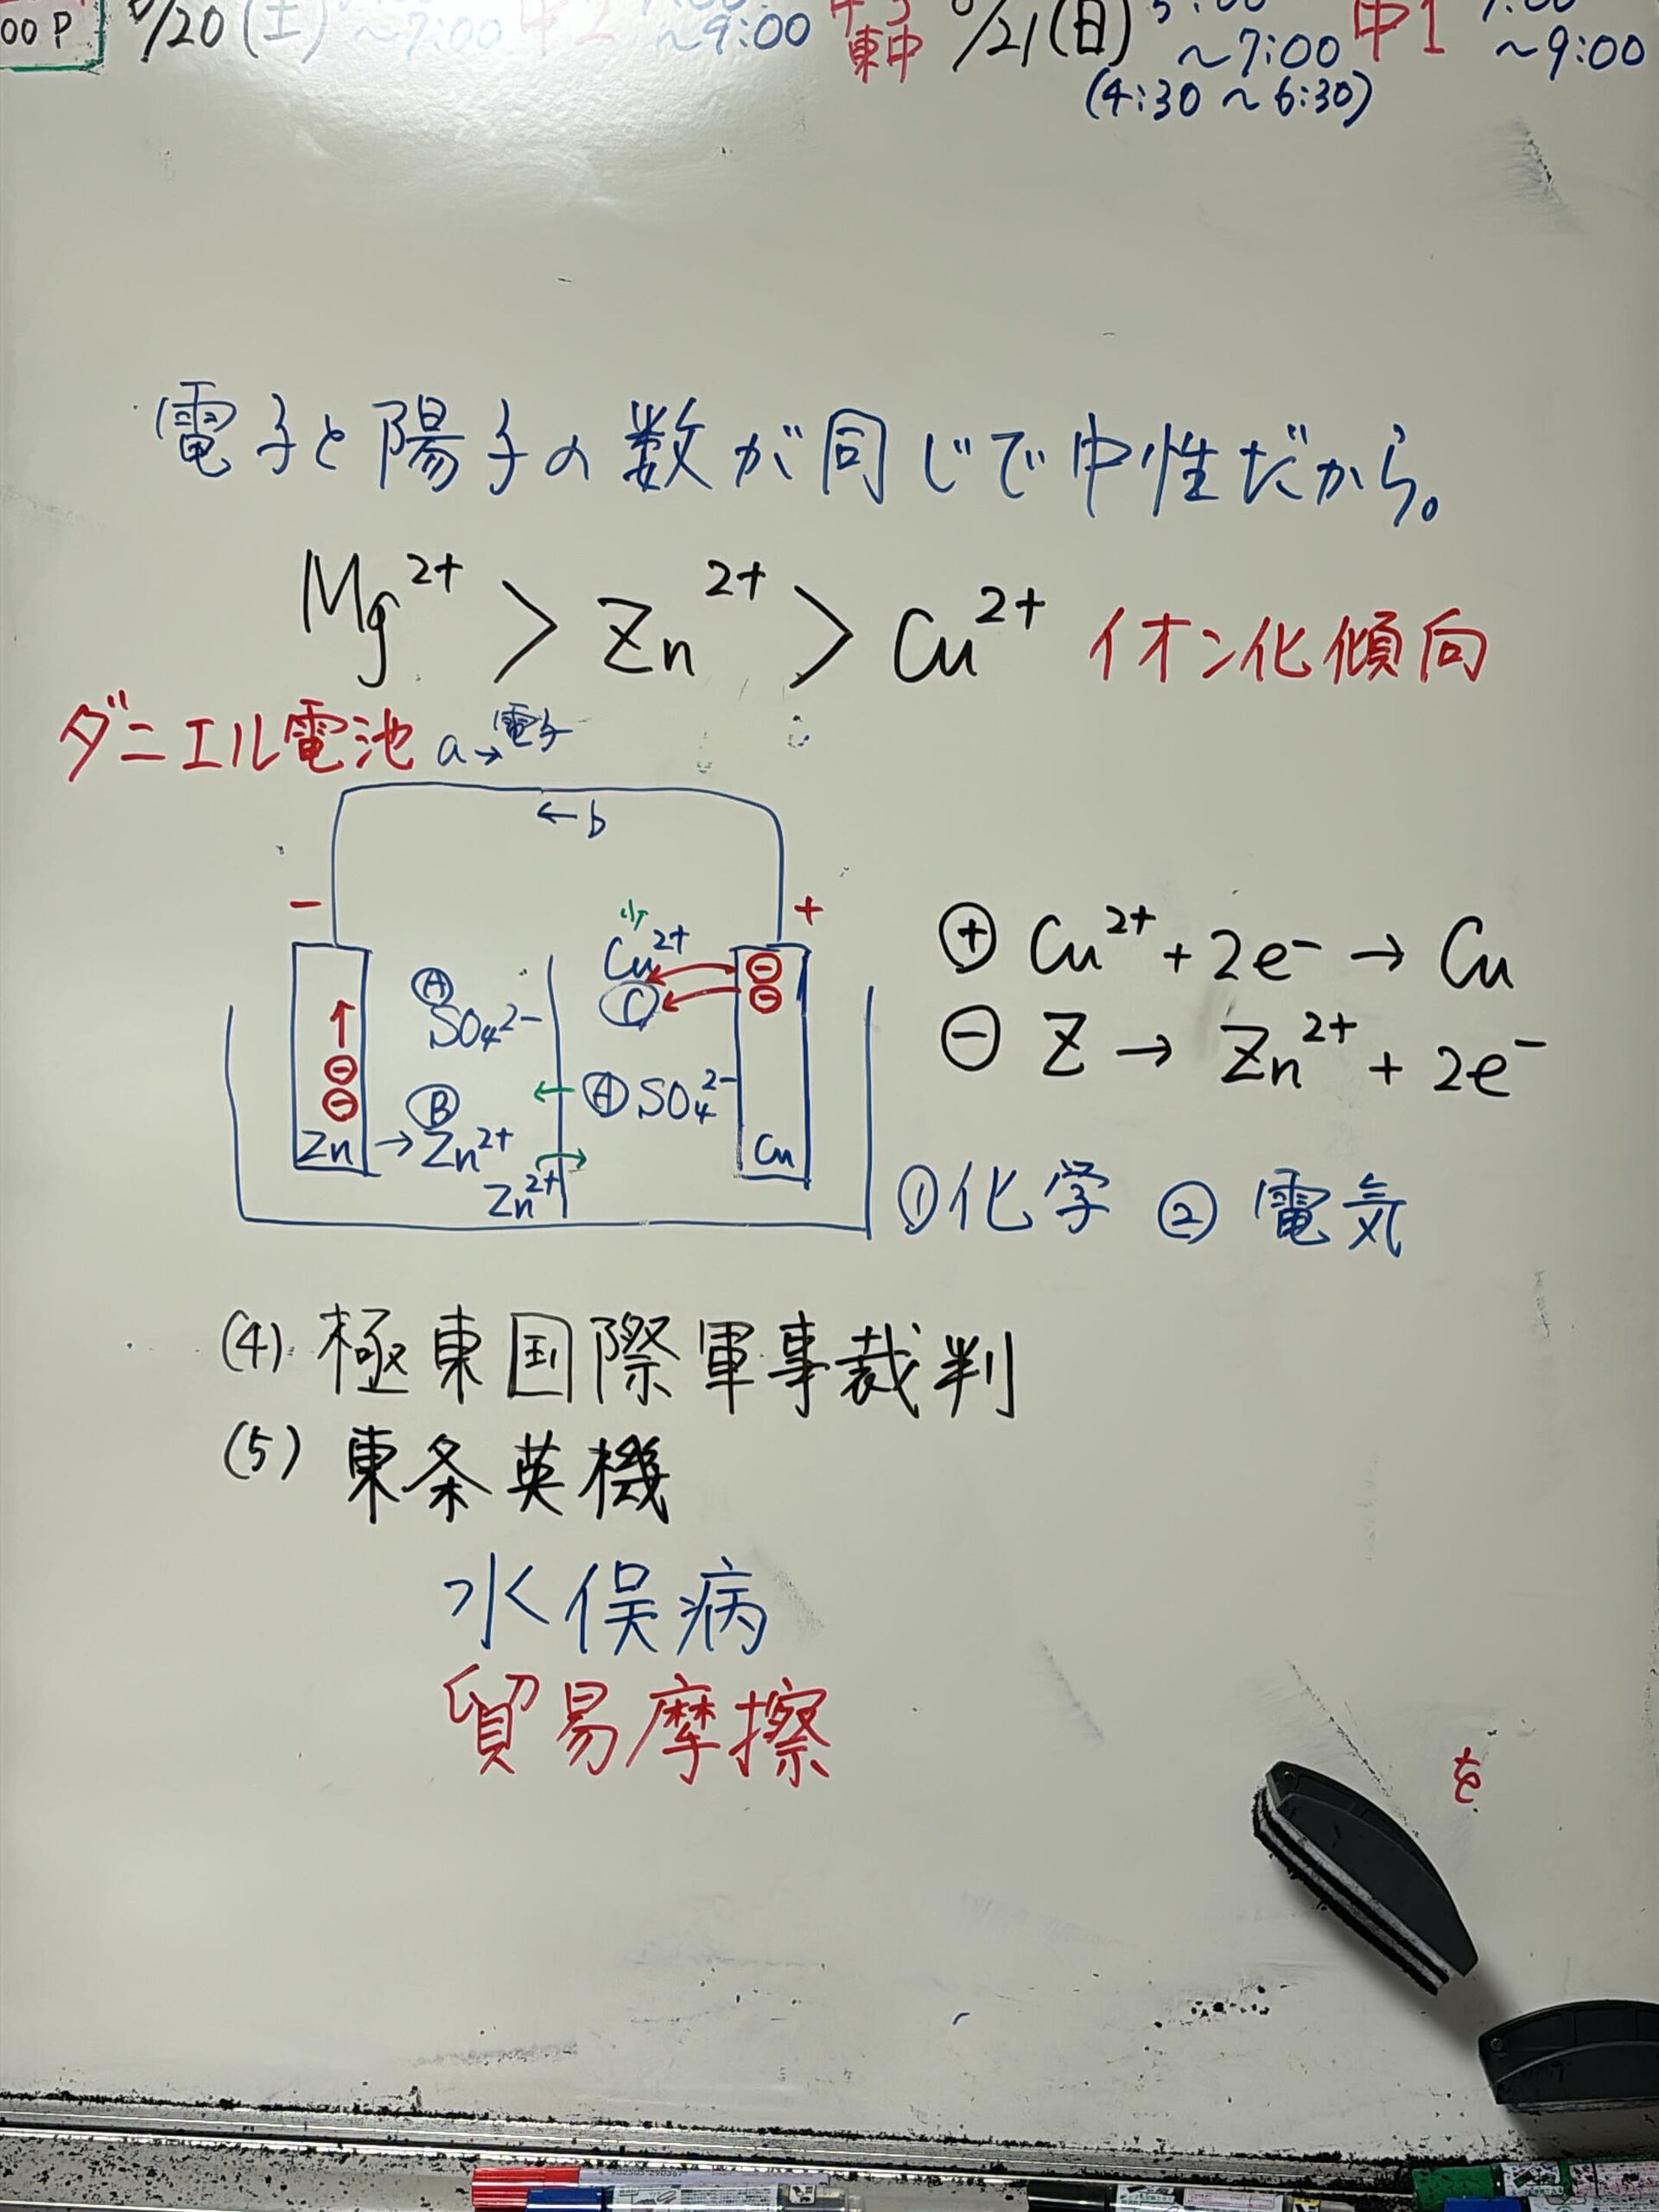 00 P /20(土) ~7:00 中2 ~9:00 東中 /21(日) ~7:00 中1 ~9:00
(4:30 ~ 6:30)
電子と陽子の数が同じで中性だから。
Mg²⁺ > Zn²⁺ > Cu²⁺ イオン化傾向
ダニエル電池 a→電子
←b
− +
Cu²⁺
Ⓐ Ⓒ ⊖
SO₄²⁻ ⊖
↑
⊖ ← Ⓐ SO₄²⁻
⊖ Ⓑ
Zn → Zn²⁺ → Cu
Zn²⁺
⊕ Cu²⁺ + 2e⁻ → Cu
⊖ Z → Zn²⁺ + 2e⁻
①化学 ②電気
(4) 極東国際軍事裁判
(5) 東条英機
水俣病
貿易摩擦
を